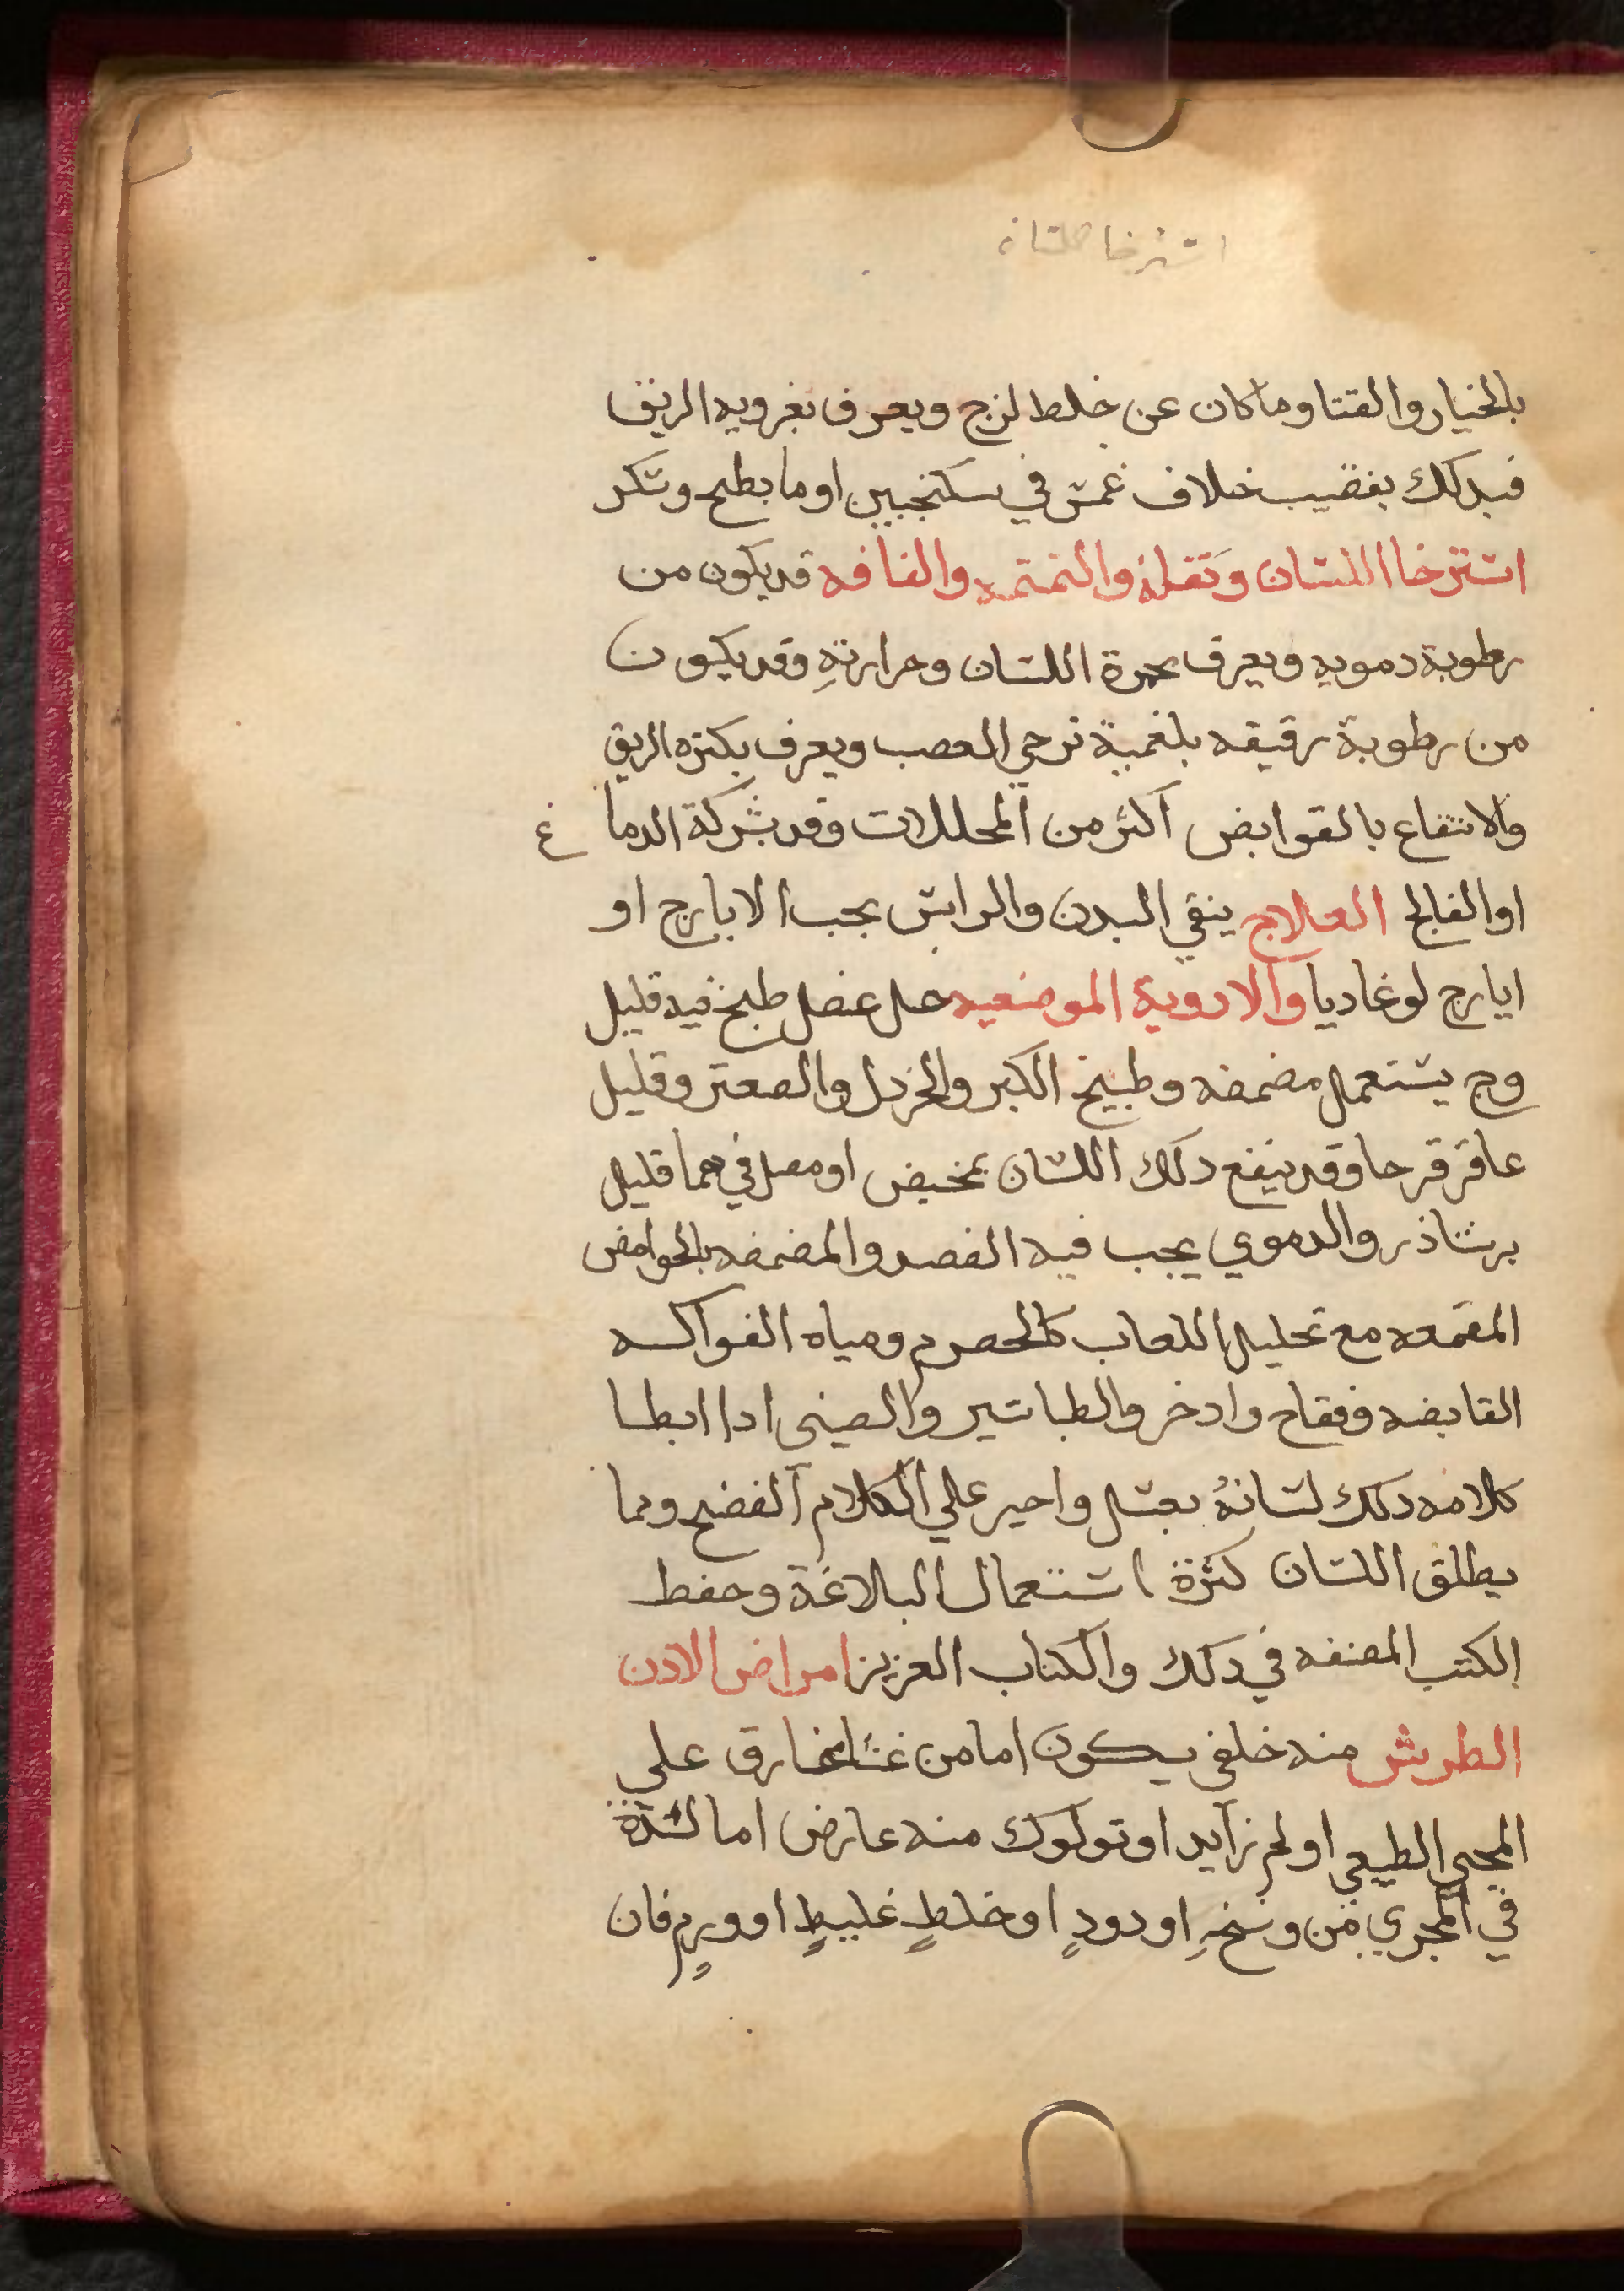 استرخا اللسان
بالخيار والقثا وما كان عن خلط لزج ويعرف بغرويه الريق
فيدلك بقضيب خلاف غمس في سكنجبين او ما بطيح وسكر
استرخا اللسان وثقله والتمتمه والفافه قد يكون من
رطوبة دمويه ويعرف بحمرة اللسان وحرارتهِ وقد يكون
من رطوبة رقيقه بلغمية ترخي العصب ويعرف بكثره الريق
والانتفاع بالقوابض اكثر من المحللات وقد بشركة الدماغ
او الفالج العلاج ينقي البدن والراس بحب الايارج او
ايارج لوغاديا والادوية الموضعيه خل عنصل طبخ فيه قليل
وج يستعمل مضمضه وطبيخ الكبر والخردل والصعتر وقليل
عاقر قرحا وقد ينفع دلك اللسان بمخيض او مصل فيهما قليل
نرشاذر والدموي يجب فيه الفصد والمضمضه بالحوامض
المقمعه مع تحليل اللعاب كالحصرم ومياه الفواكه
القابضه وفقاح واذخر والطباشير والصبي اذا ابطا
كلامه دلك لسانهُ بعسل واجبر علي الكلام الفصيح ومما
يطلق اللسان كثرة استعمال البلاغة وحفظ
الكتب المصنفه في ذلك والكتاب العزيز امراض الاذن
الطرش منه خلقي يكون اما من غشا على
المجري الطبيعي او لحم زايد او تولوك منه عارض اما لسدة
في المجري من وسخٍ او دودٍ او خلطٍ غليظٍ او ورمٍ فان